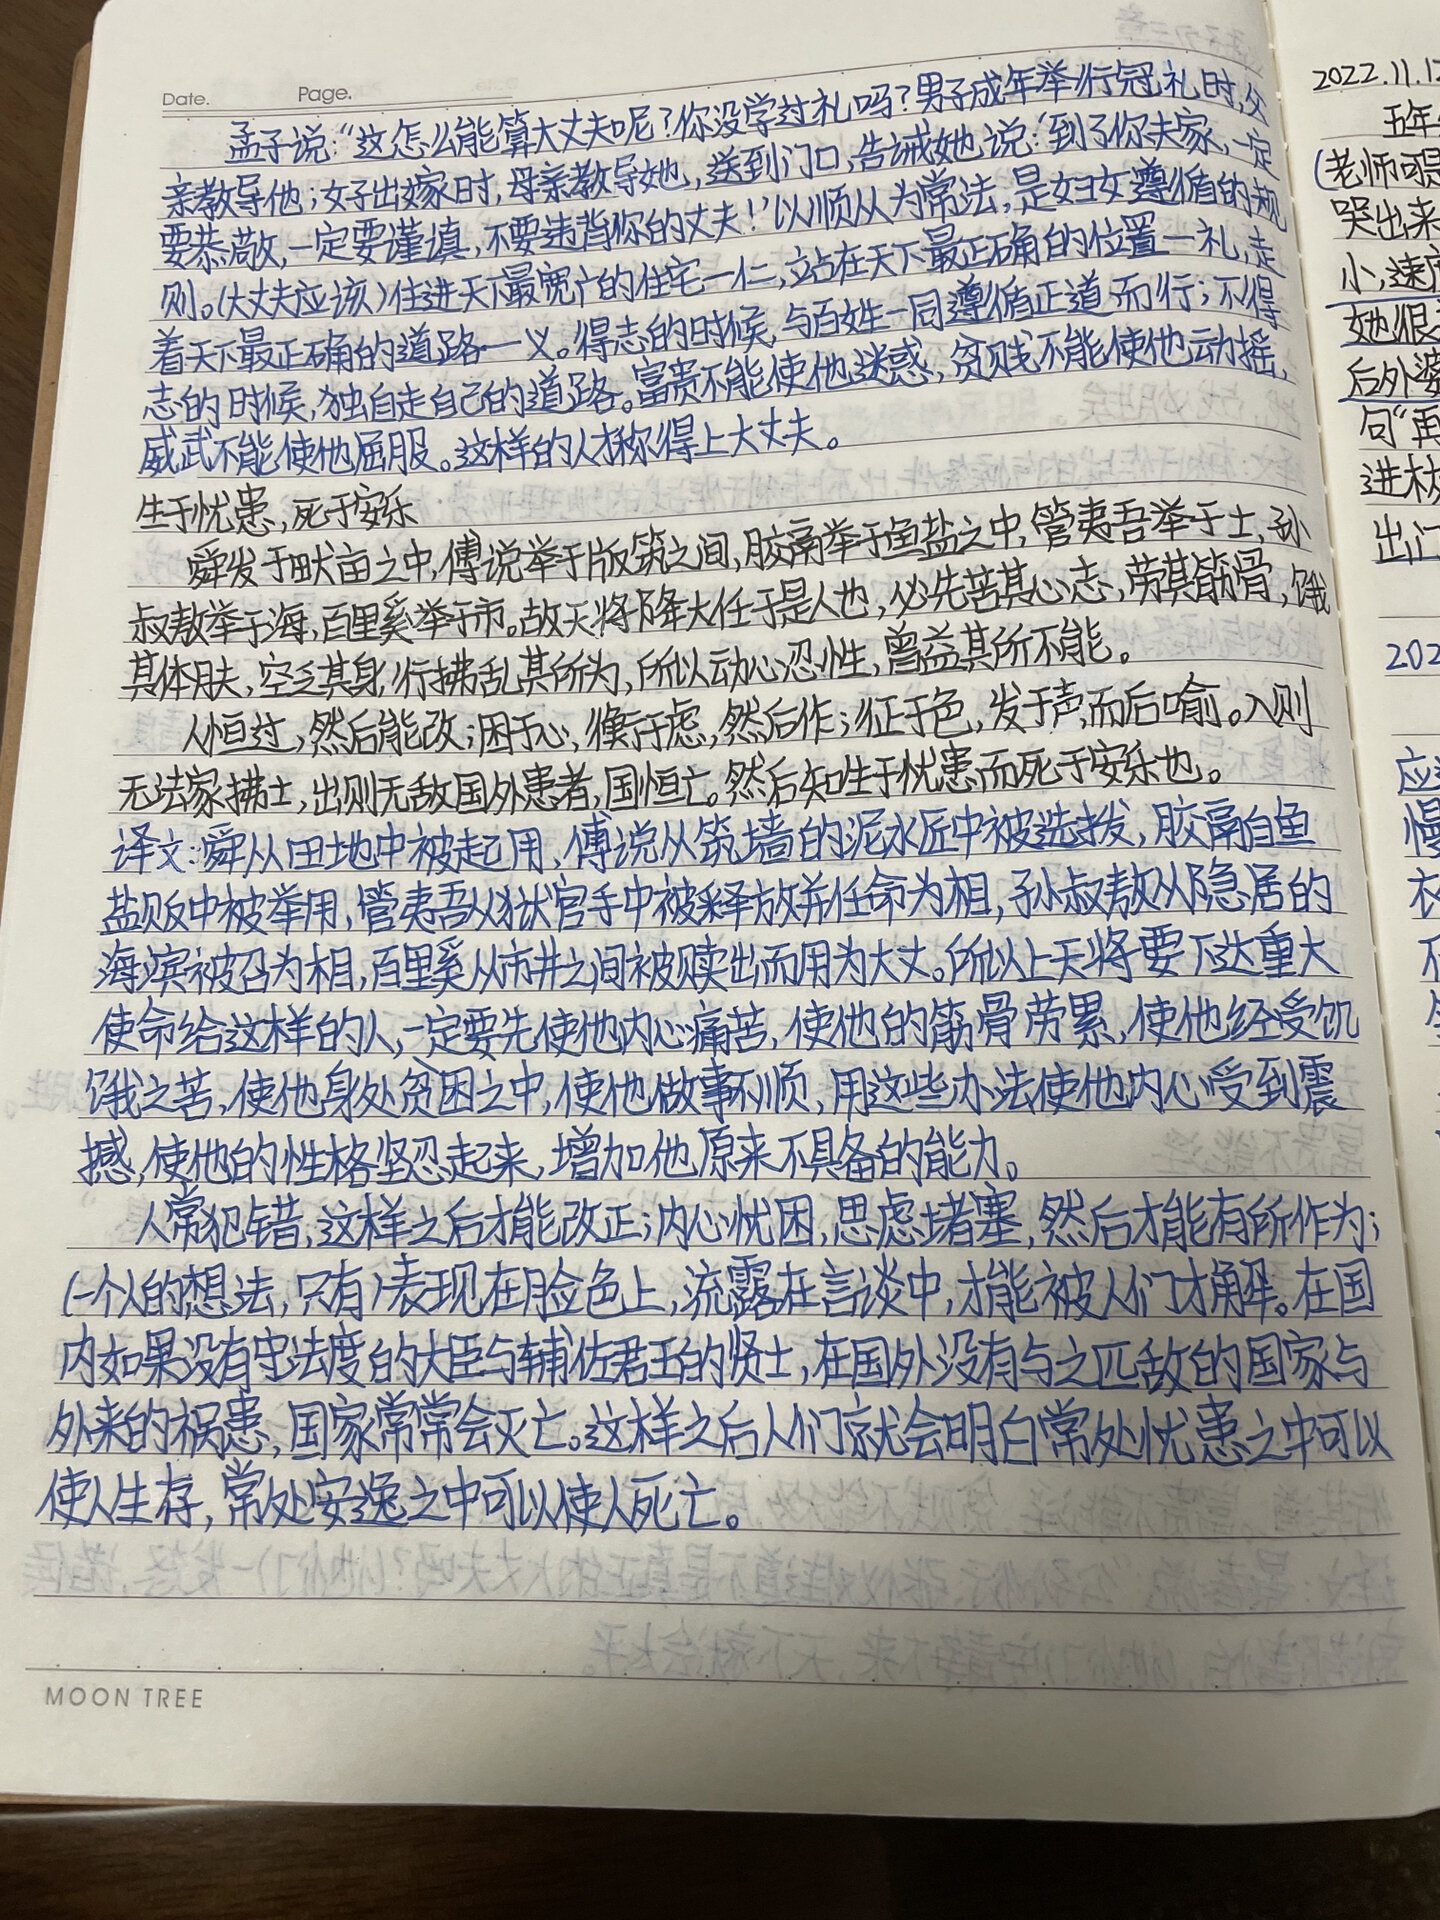 Date.
Page.
孟子说:“这怎么能算大丈夫呢?你没学过礼吗?男子成年举行冠礼时,父
亲教导他;女子出嫁时,母亲教导她,送到门口,告诫她说:‘到了你夫家,一定
要恭敬,一定要谨慎,不要违背你的丈夫!’以顺从为常法,是妇女遵循的规
则。(大丈夫应该)住进天下最宽广的住宅—仁,站在天下最正确的位置—礼,走
着天下最正确的道路—义。得志的时候,与百姓一同遵循正道而行;不得
志的时候,独自走自己的道路。富贵不能使他迷惑,贫贱不能使他动摇,
威武不能使他屈服。这样的人才称得上大丈夫。
生于忧患,死于安乐
舜发于畎亩之中,傅说举于版筑之间,胶鬲举于鱼盐之中,管夷吾举于士,孙
叔敖举于海,百里奚举于市。故天将降大任于是人也,必先苦其心志,劳其筋骨,饿
其体肤,空乏其身,行拂乱其所为,所以动心忍性,曾益其所不能。
人恒过,然后能改;困于心,衡于虑,然后作;征于色,发于声,而后喻。入则
无法家拂士,出则无敌国外患者,国恒亡。然后知生于忧患而死于安乐也。
译文:舜从田地中被起用,傅说从筑墙的泥水匠中被选拨,胶鬲自鱼
盐贩中被举用,管夷吾从狱官手中被释放并任命为相,孙叔敖从隐居的
海滨被召为相,百里奚从市井之间被赎出而用为大丈。所以上天将要下达重大
使命给这样的人,一定要先使他内心痛苦,使他的筋骨劳累,使他经受饥
饿之苦,使他身处贫困之中,使他做事不顺,用这些办法使他内心受到震
撼,使他的性格坚忍起来,增加他原来不具备的能力。
人常犯错,这样之后才能改正;内心忧困,思虑堵塞,然后才能有所作为;
(一个人的想法,只有)表现在脸色上,流露在言谈中,才能被人们才解。在国
内如果没有守法度的大臣与辅佐君王的贤士,在国外没有与之匹敌的国家与
外来的祸患,国家常常会灭亡。这样之后人们就会明白常处忧患之中可以
使人生存,常处安逸之中可以使人死亡。
MOON TREE
2022.11.12
五年
(老师可
哭出来
小,速度
她很
后外婆
句“再
进校
出门
202
应
慢
衣
不